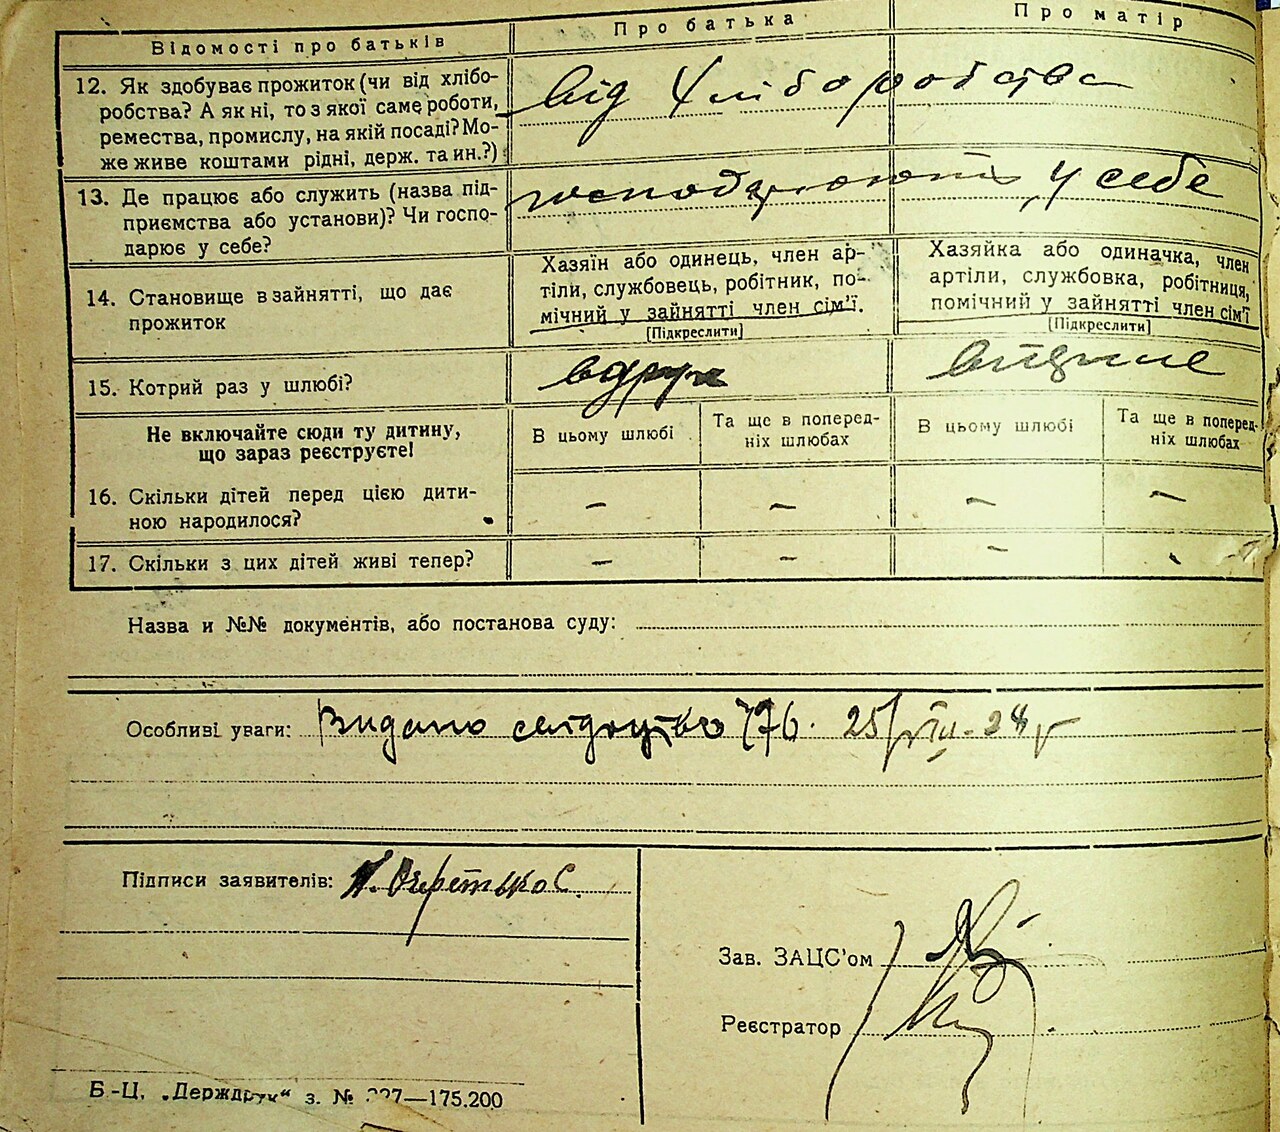 Відомості про батьків
Про батька
Про матір
12. Як здобуває прожиток (чи від хлібо-
робства? А як ні, то з якої саме роботи,
ремества, промислу, на якій посаді? Мо-
же живе коштами рідні, держ. та ин.?)
від хліборобства
13. Де працює або служить (назва під-
приємства або установи)? Чи госпо-
дарює у себе?
господарюють у себе
14. Становище в зайнятті, що дає
прожиток
Хазяїн або одинець, член ар-
тіли, службовець, робітник, по-
мічний у зайнятті член сім'ї.
[Підкреслити]
Хазяйка або одиначка, член
артіли, службовка, робітниця,
помічний у зайнятті член сім'ї
[Підкреслити]
15. Котрий раз у шлюбі?
вдруге
Не включайте сюди ту дитину,
що зараз реєструєте!
В цьому шлюбі
Та ще в поперед-
ніх шлюбах
В цьому шлюбі
Та ще в поперед-
ніх шлюбах
16. Скільки дітей перед цією дити-
ною народилося?
– – – –
17. Скільки з цих дітей живі тепер?
– – – –
Назва и №№ документів, або постанова суду:
Особливі уваги: Видано свідоцтво 776. 25/VIII-28 г
Підписи заявителів:
Зав. ЗАЦС'ом
Реєстратор
Б.-Ц. „Держдрук“ з. № 227—175.200